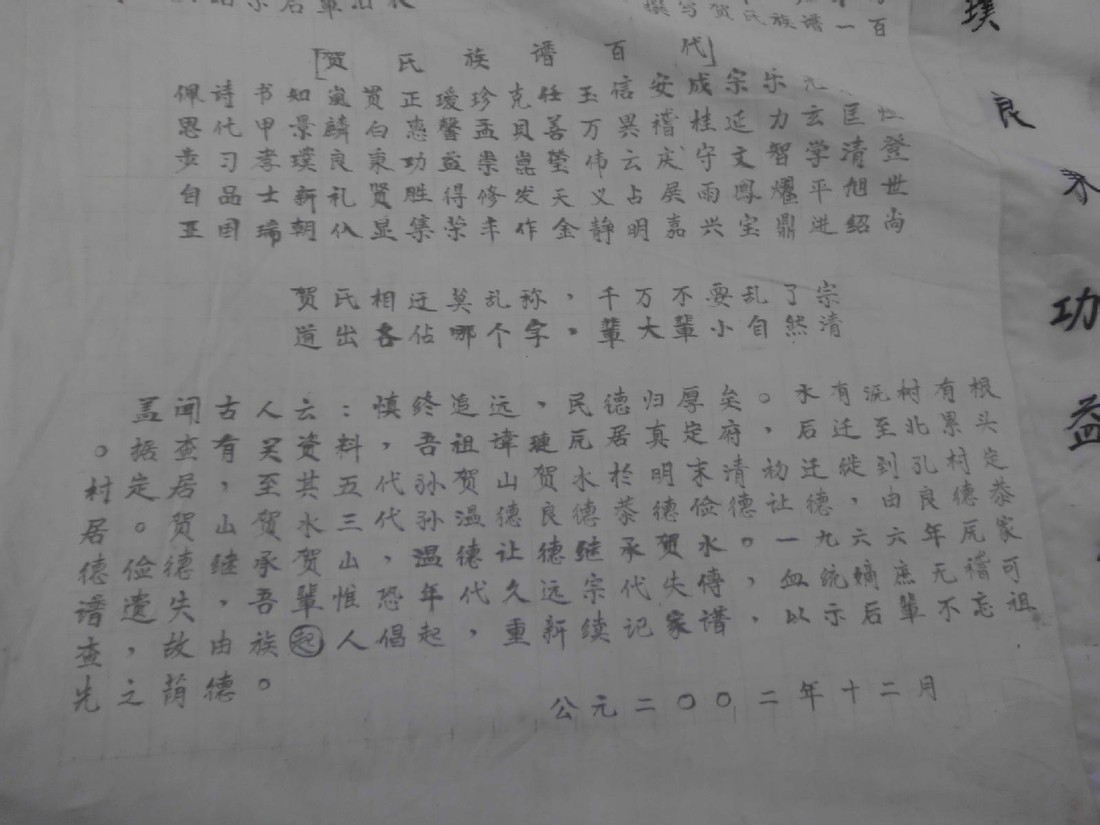 撰写贺氏族谱一百
[贺氏族谱百代]
佩诗书知岚贯正瑷珍克任玉信安成宗乐元
思代甲景麟白惠馨孟贝善万異稽桂延力玄匡
步习孝璞良秉功益崇嵩莹伟云庆守文智学清登
自品士新礼贤胜得修发天义占居雨凤耀平旭世
王国瑞朝仪显集荣丰作金静明嘉兴宝鼎进绍尚
贺氏相迁莫乱称，千万不要乱了宗
道出各佔哪个字。辈大辈小自然清
盖闻古人云：慎终追远，民德归厚矣。水有沅树有根
。据查有关资料，吾祖讳琏凥居真定府，后迁至北累头
村定居，至其五代孙贺山贺水於明末清初迁徙到孔村定
居。贺山贺水三代孙温德良德恭德俭德让德，由良德恭
德俭德继承贺山，温德让德继承贺水。一九六六年凥家
谱遗失，吾辈惟恐年代久远宗代失傳，血统嫡庶无稽可
查，故由族起人倡起，重新续记家谱，以示后辈不忘祖
先之荫德。
公元二〇〇二年十二月
璞
良
功
益